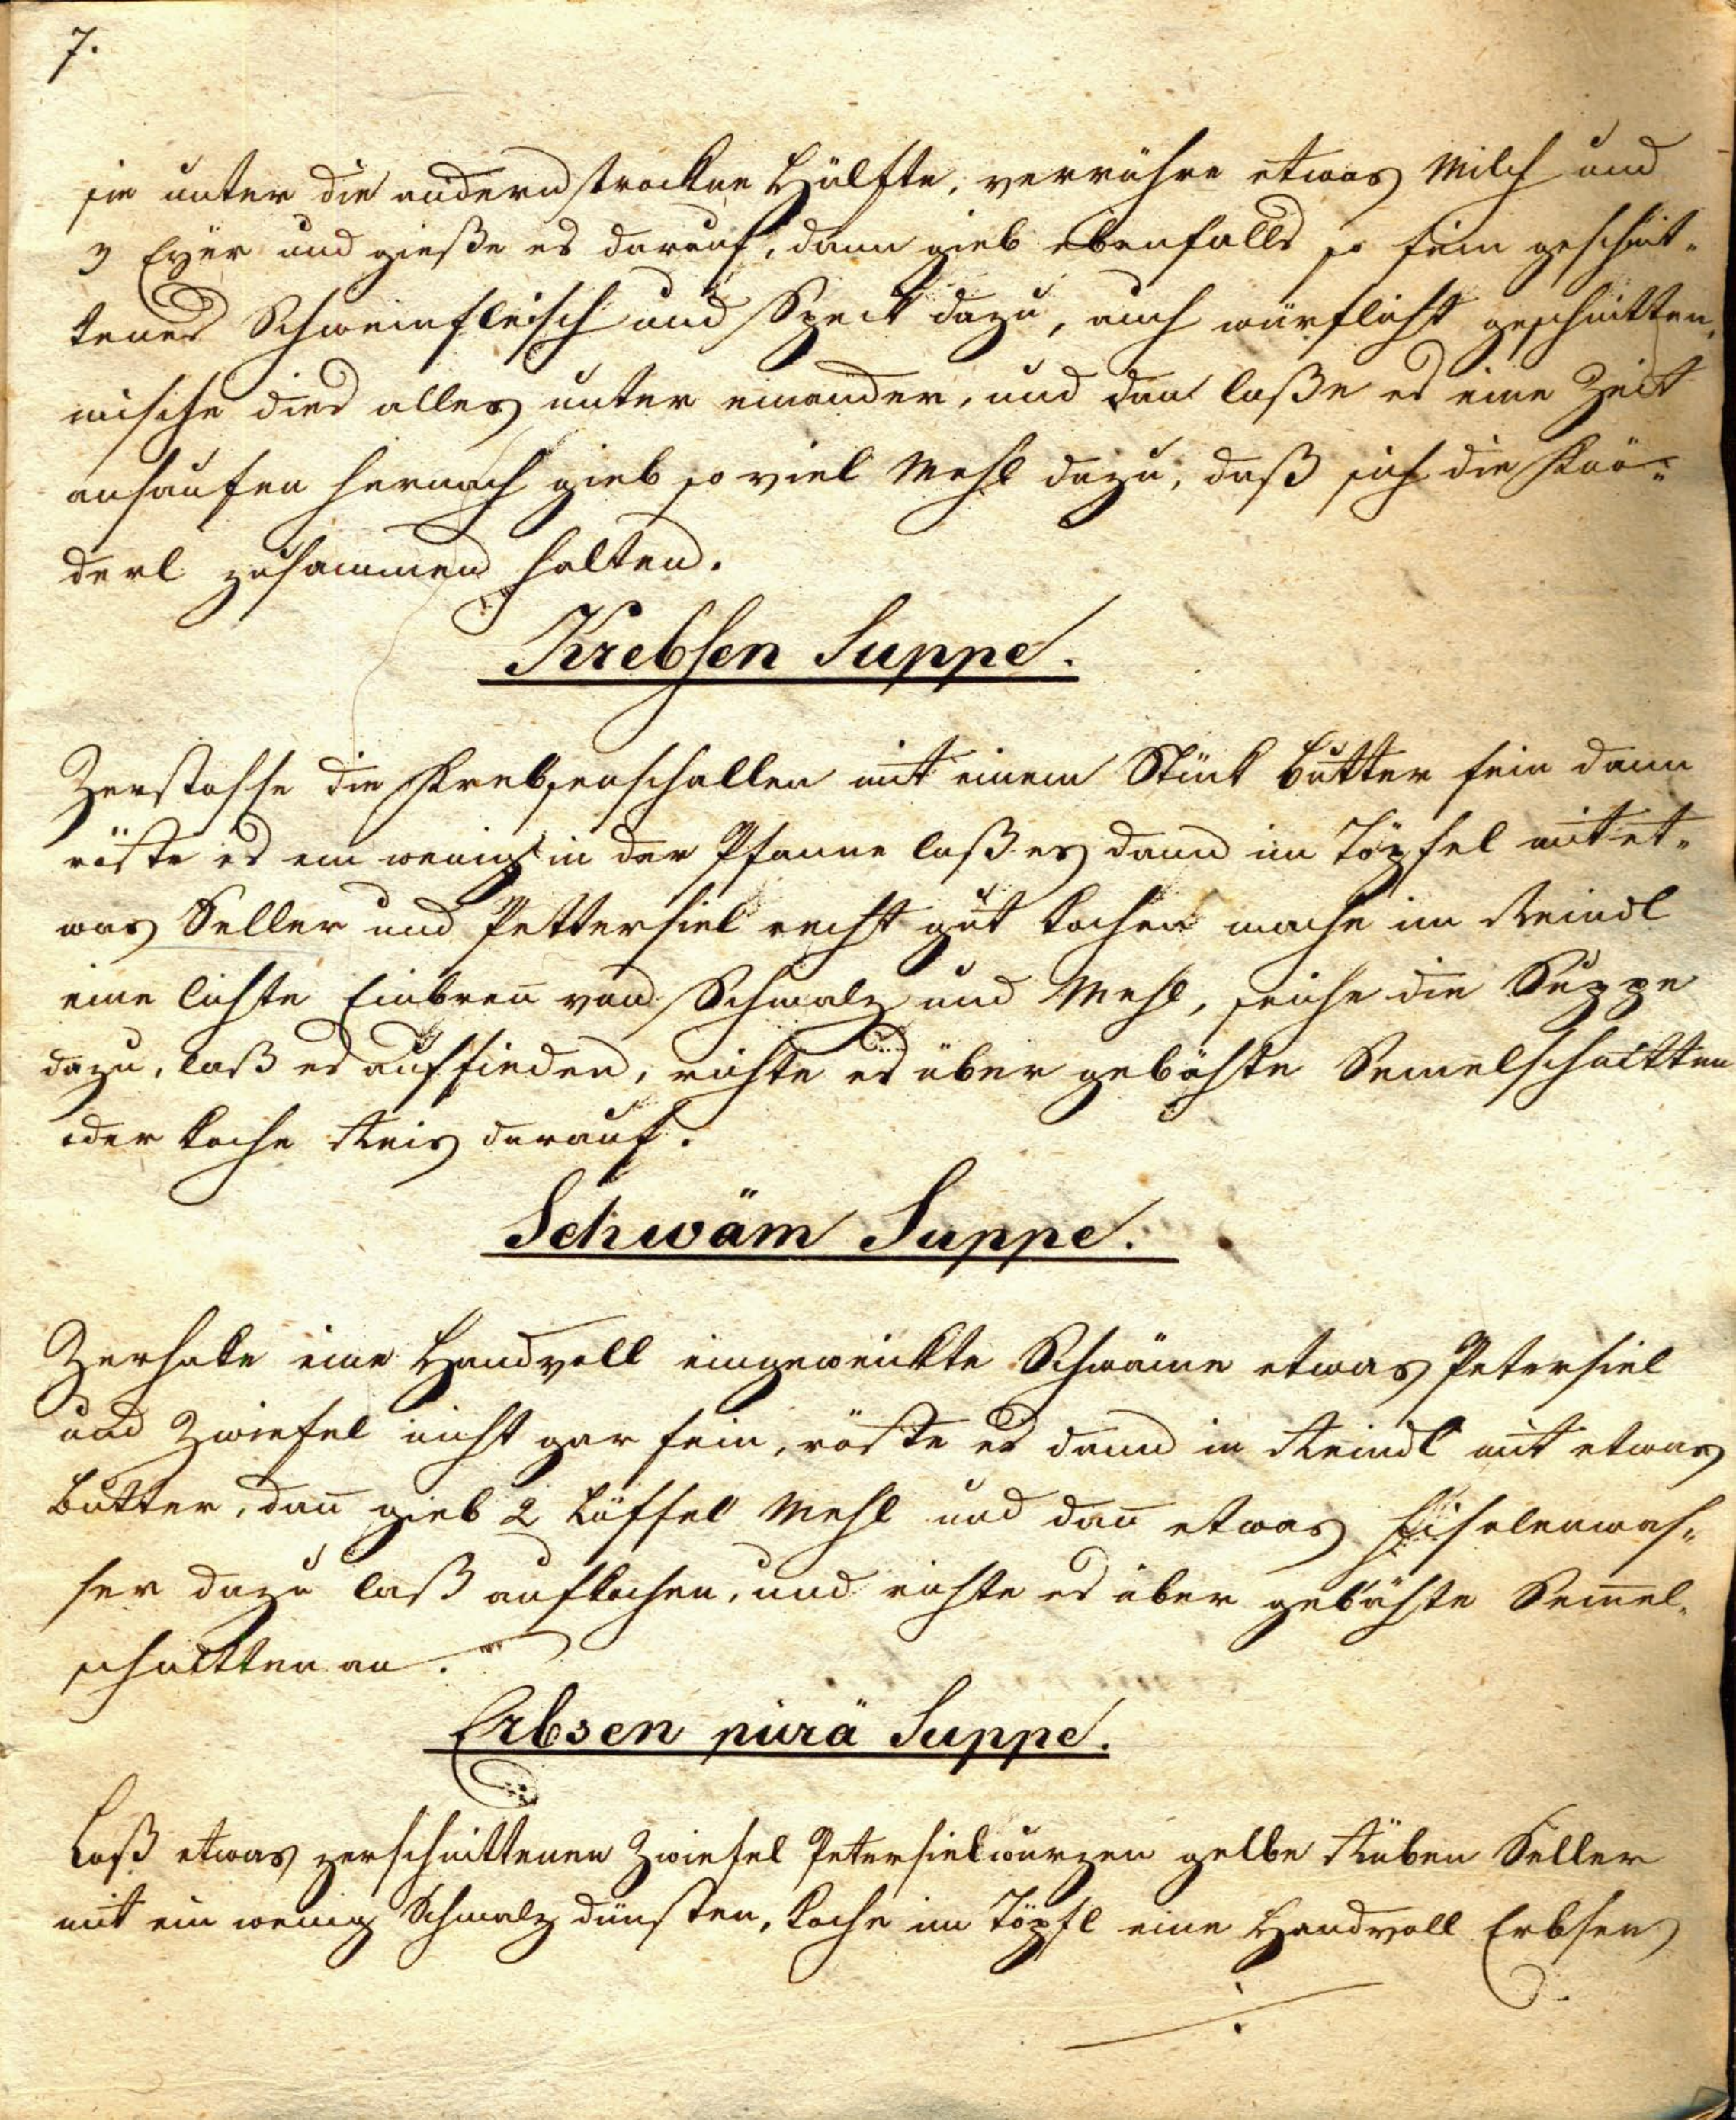 7.
sie unter die andern trockne Hälfte, verrühre etwas Milch und
3 Eÿer und gieße es darauf, dann gieb ebenfalls so fein geschnit-
tenes Schweinfleisch und Speck dazu, auch würflicht geschnitten,
mische dies alles unter einander, und dan laße es eine Zeit
ansaufen hernach gieb so viel Mehl dazu, daß sich die Knö-
derl zusammen halten.
Krebsen Suppe.
Zerstosse die Krebsenschallen mit einem Stück Butter fein dann
röste es ein wenig in der Pfanne laß es dann im Töpfel mit et-
was Seller und Pettersiel recht gut kochen mache im Reindl
eine lichte Einbren̄ von Schmalz und Mehl, seihe die Suppe
dazu, laß es aufsieden, richte es über gebähte Semelschnitten
oder koche Reis darauf.
Schwäm Suppe.
Zerhake eine Handvoll eingeweickte Schwäme etwas Petersiel
und Zwiefel nicht gar fein, röste es dann in Reindl mit etwas
Butter, dan̄ gieb 2 Löffel Mehl und dan̄ etwas Fisolenwas-
ser dazu laß aufkochen, und richte es über gebähte Sem̄el-
schnitten an.
Erbsen pürä Suppe.
Laß etwas zerschnittenen Zwiefel Petersielwurzen gelbe Rüben Seller
mit ein wenig Schmalz dünsten, koche im Töpfl eine Handvoll Erbsen